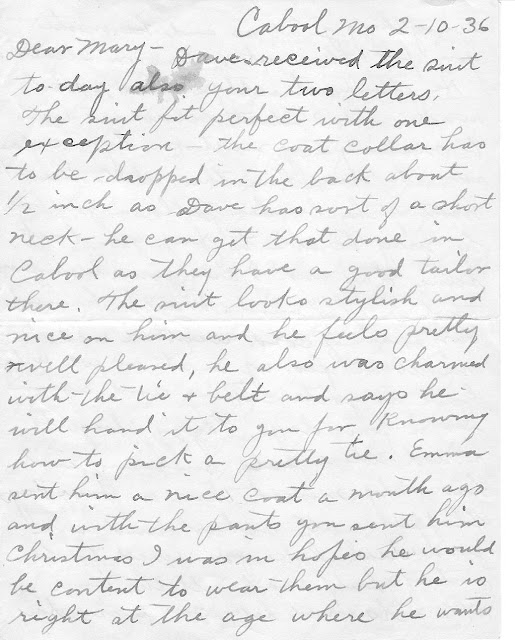 Cabool Mo 2-10-36
Dear Mary - Dave received the suit
to-day also your two letters.
The suit fit perfect with one
exception - the coat collar has
to be dropped in the back about
1/2 inch as Dave has sort of a short
neck - he can get that done in
Cabool as they have a good tailor
there. The suit looks stylish and
nice on him and he feels pretty
well pleased, he also was charmed
with the tie + belt and says he
will hand it to you for knowing
how to pick a pretty tie. Emma
sent him a nice coat a month ago
and with the pants you sent him
Christmas I was in hopes he would
be content to wear them but he is
right at the age where he wants